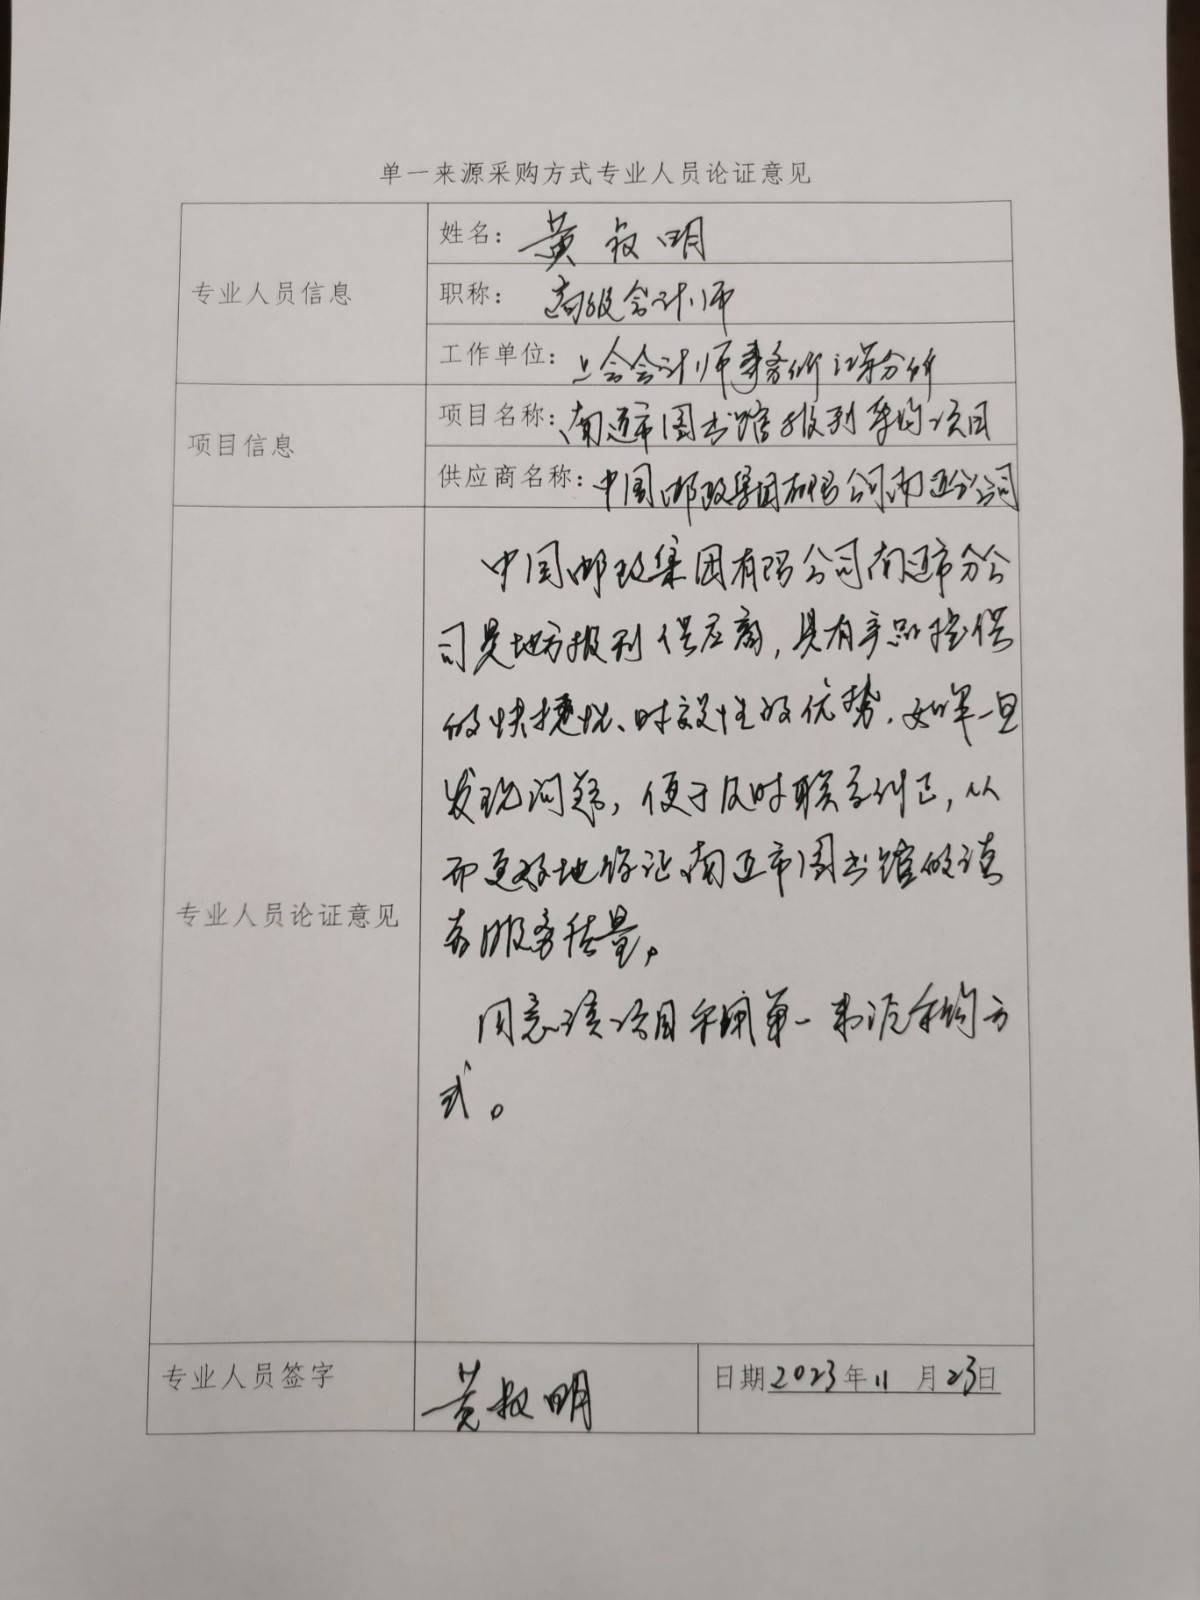 单一来源采购方式专业人员论证意见
专业人员信息
姓名：黄叔明
职称：高级会计师
工作单位：上会会计师事务所江苏分所
项目信息
项目名称：南通市图书馆报刊采购项目
供应商名称：中国邮政集团有限公司南通分公司
专业人员论证意见
中国邮政集团有限公司南通市分公
司是地方报刊供应商，具有产品提供
的快捷性、时效性的优势，如果一旦
发现问题，便于及时联系纠正，从
而更好地保证南通市图书馆的读
者服务质量。
同意该项目采用单一来源采购方
式。
专业人员签字
黄叔明
日期2023年11月23日